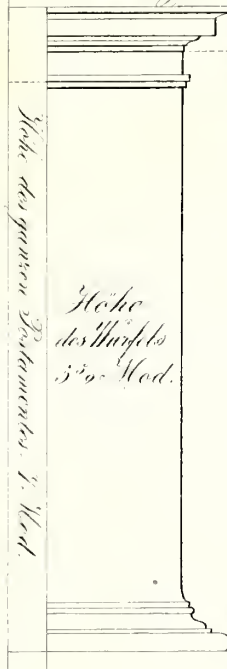 Höhe des ganzen Postamentes. 7. Mod.
Höhe
des Würfels
Mod.